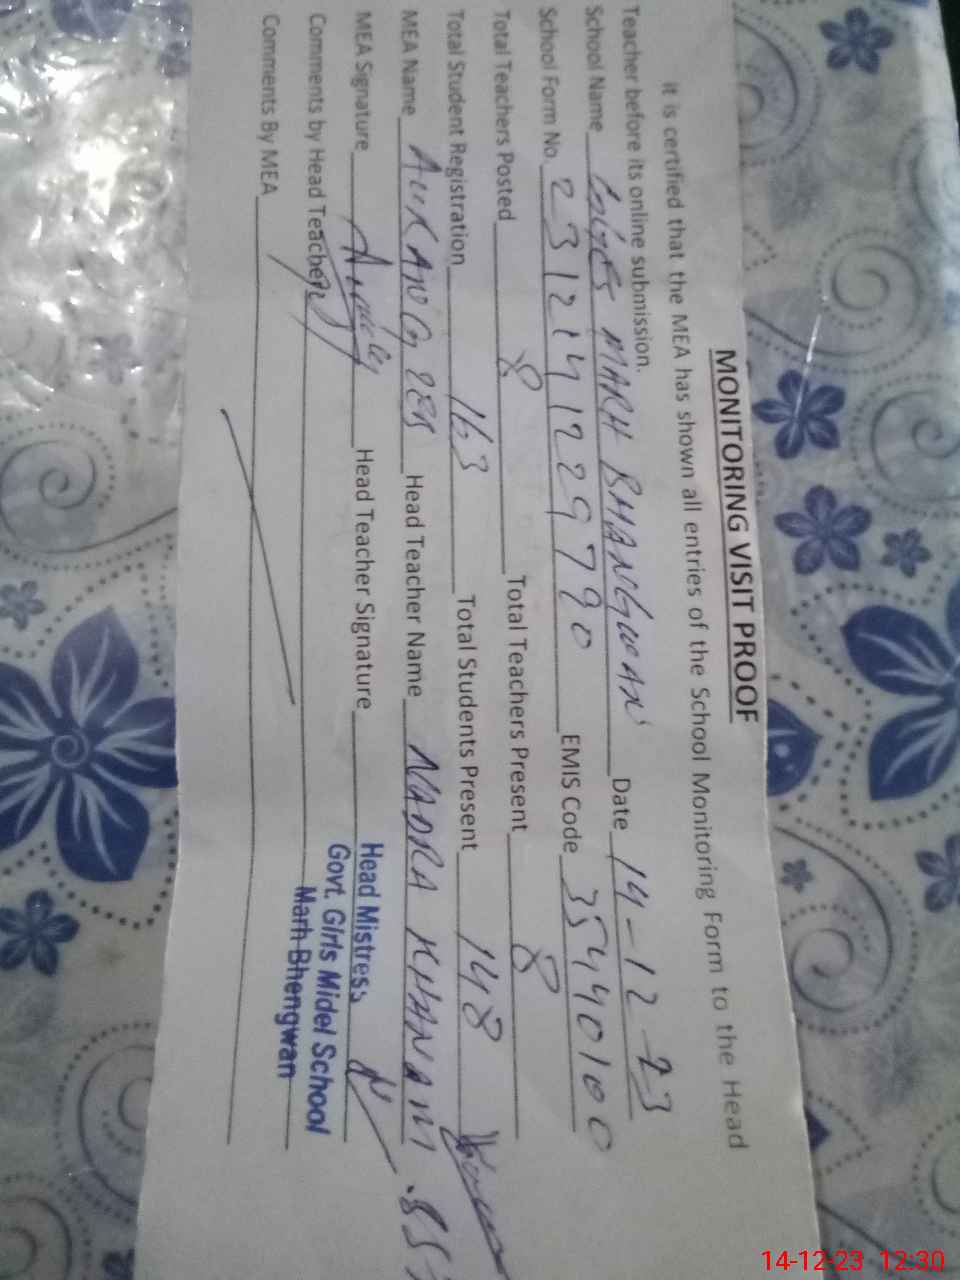 MONITORING VISIT PROOF
It is certified that the MEA has shown all entries of the School Monitoring Form to the Head
Teacher before its online submission.
School Name MARH BHANGWAN Date 14-12-23
School Form No. EMIS Code 35440100
Total Teachers Posted 8 Total Teachers Present 8
Total Student Registration 163 Total Students Present 148
MEA Name Head Teacher Name NADRA KHANAM
MEA Signature Head Teacher Signature
Head Mistress
Comments by Head Teacher
Govt. Girls Midel School
Marh Bhengwan
Comments By MEA
14-12-23 12:30